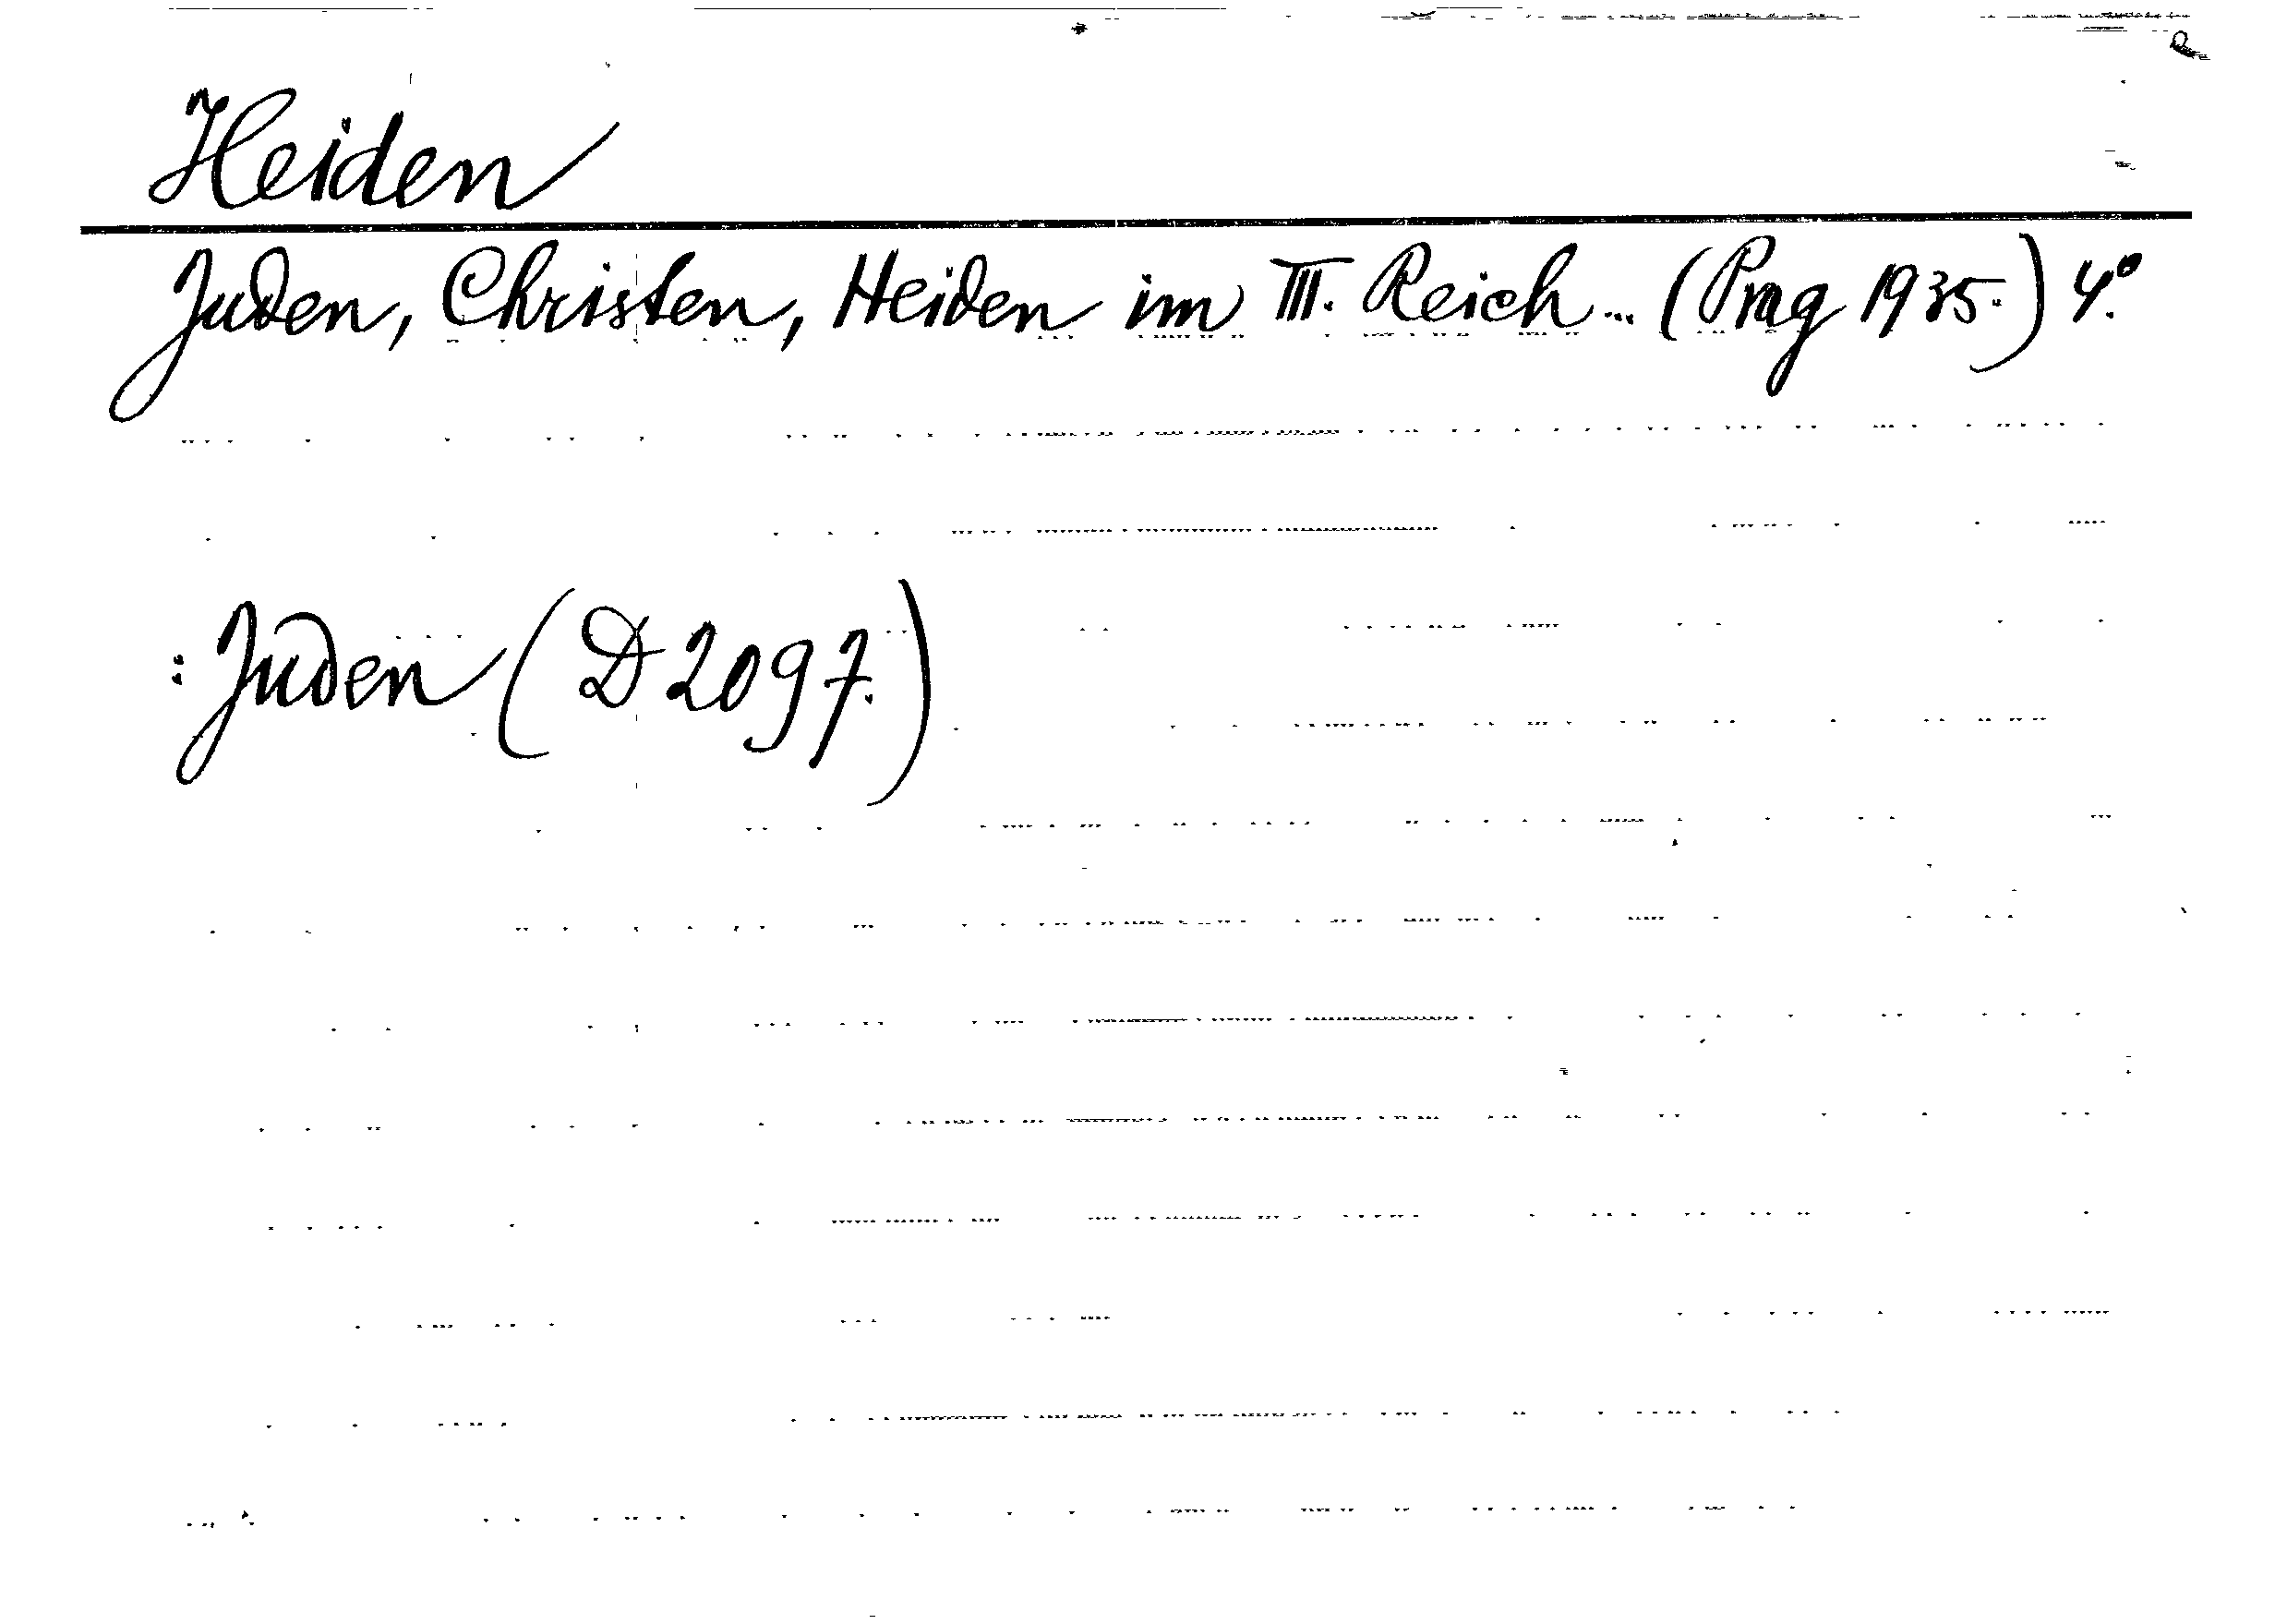 Heiden
Juden, Christen, Heiden im III. Reich... (Prag 1935.) 4.º
: Juden (D 2097.)